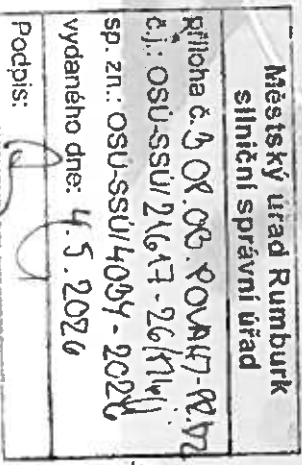 Městský úřad Rumburk
silniční správní úřad
příloha č. 3
č.j.: OSÚ-SSÚ/21617-26/
sp. zn.: OSÚ-SSÚ/4094-2026
vydaného dne: 4.5.2026
Podpis: